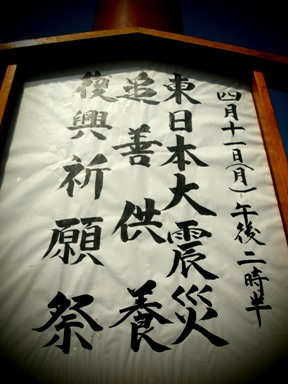 四月十一日(月)午後二時半
東日本大震災
追善供養
復興祈願祭